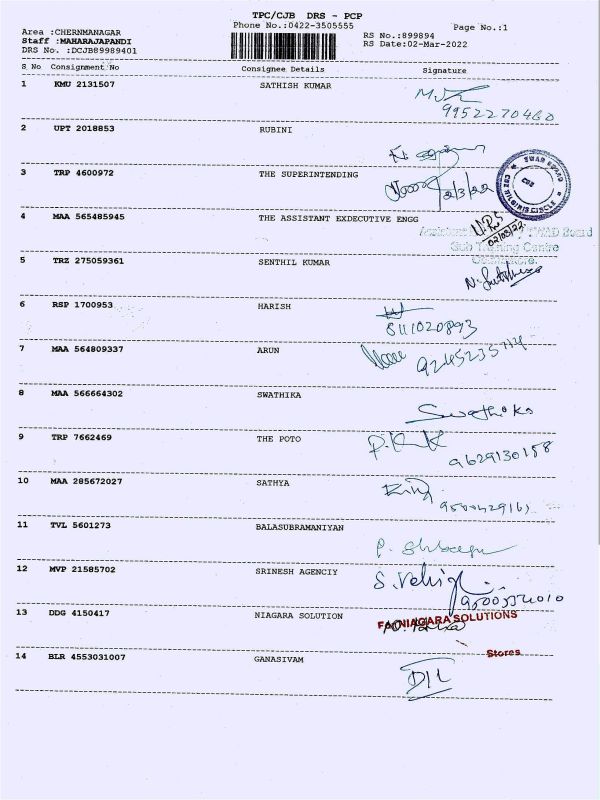 TPC/CJB DRS - PCP
Phone No.:0422-3505555
Page No.:1
Area :CHERNMANAGAR
Staff :MAHARAJAPANDI
DRS No. :DCJB89989401
RS No.:899894
RS Date:02-Mar-2022
S No Consignment No Consignee Details Signature
1 KMU 2131507 SATHISH KUMAR
9952270460
2 UPT 2018853 RUBINI
3 TRP 4600972 THE SUPERINTENDING
2/3/22
TWAD BOARD
CIRCLE
4 MAA 565485945 THE ASSISTANT EXDECUTIVE ENGG
02/03/22
Assistant TWAD Board
Sub Training Centre
5 TRZ 275059361 SENTHIL KUMAR
6 RSP 1700953 HARISH
8111020893
7 MAA 564809337 ARUN
8 MAA 566664302 SWATHIKA
Swathika
9 TRP 7662469 THE POTO
9629130158
10 MAA 285672027 SATHYA
11 TVL 5601273 BALASUBRAMANIYAN
12 MVP 21585702 SRINESH AGENCIY
13 DDG 4150417 NIAGARA SOLUTION
For NIAGARA SOLUTIONS
Stores
14 BLR 4553031007 GANASIVAM